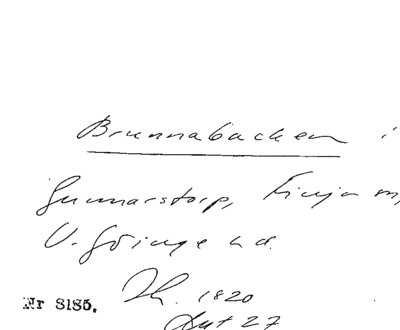 Brunnabacken i
Gunnarstorp, Finja sn,
V. Göinge hd.
Nr 8185. Th. 1820
Lut 27